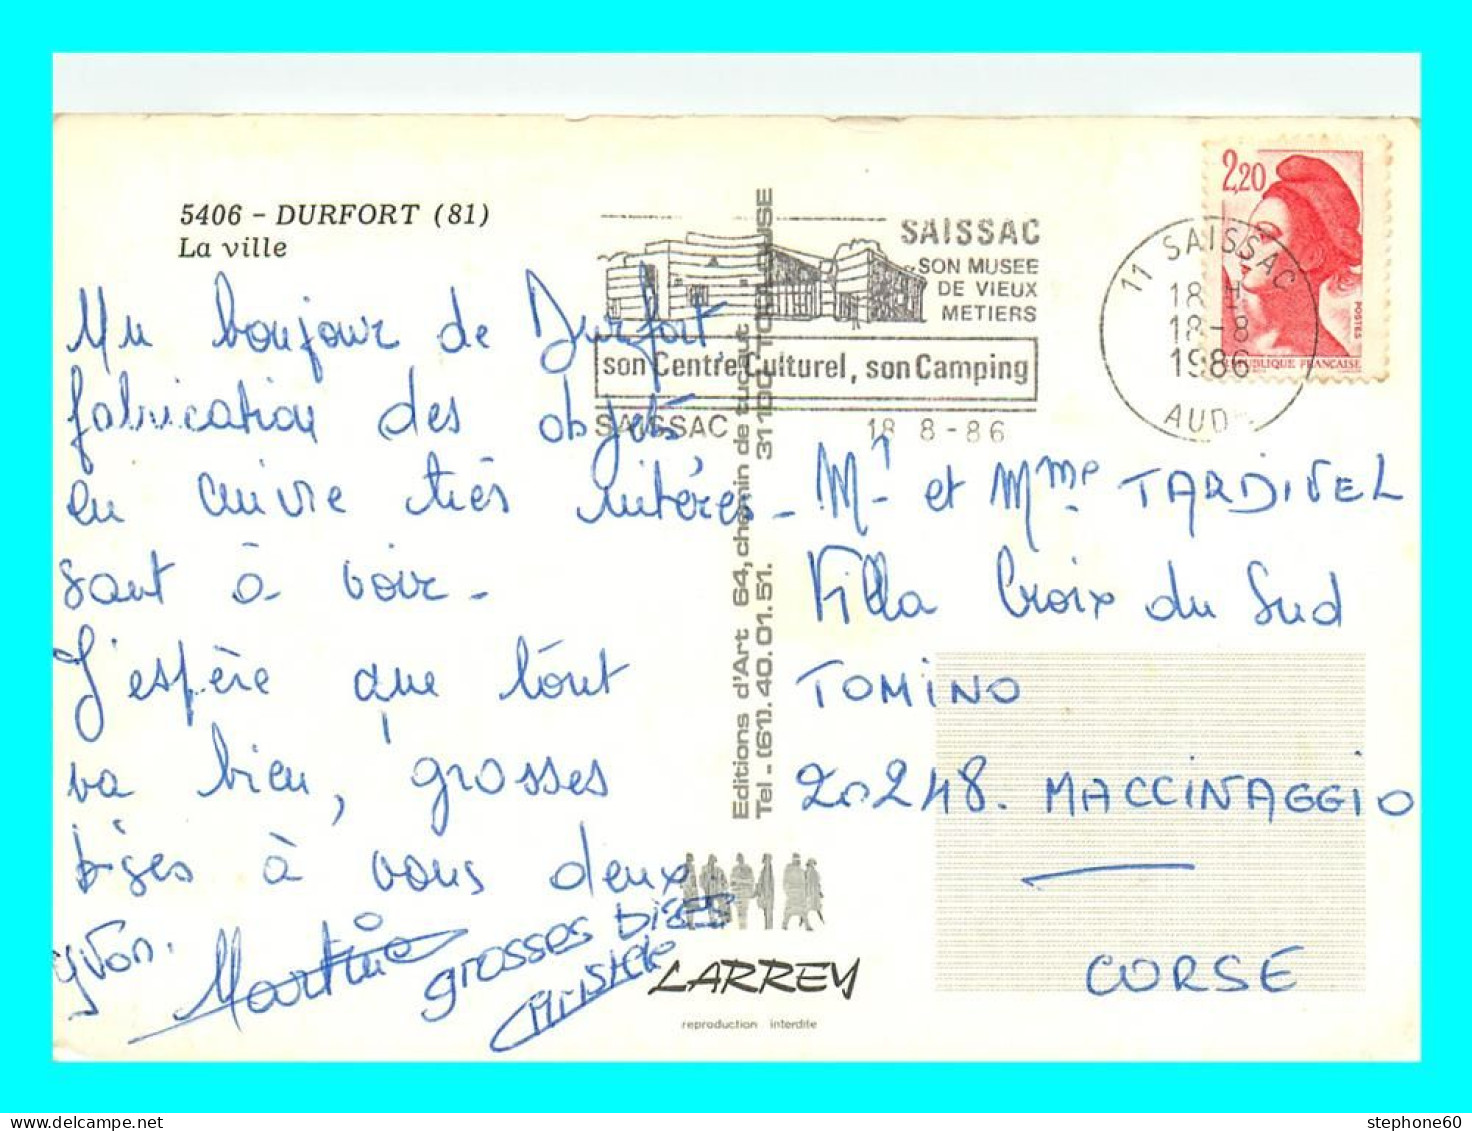 5406 - DURFORT (81)
La ville
SAISSAC
SON MUSEE
DE VIEUX
METIERS
son Centre Culturel, son Camping
SAISSAC 18 8-86
2,20
POSTES
REPUBLIQUE FRANÇAISE
11 SAISSAC
18 H
18-8
1986
AUDE
Un bonjour de Durfort
fabrication des objets
en cuivre très intéres-
sant à voir-
J'espère que tout
va bien, grosses
bises à vous deux
yvon.
Martine
grosses bises
christele
Editions d'Art 64, chemin de tucaut 31100 TOULOUSE
Tel - (61). 40. 01. 51.
LARREY
reproduction interdite
Mr et Mme TARDIVEL
Villa Croix du Sud
TOMINO
20248. MACCINAGGIO
CORSE
stephone60